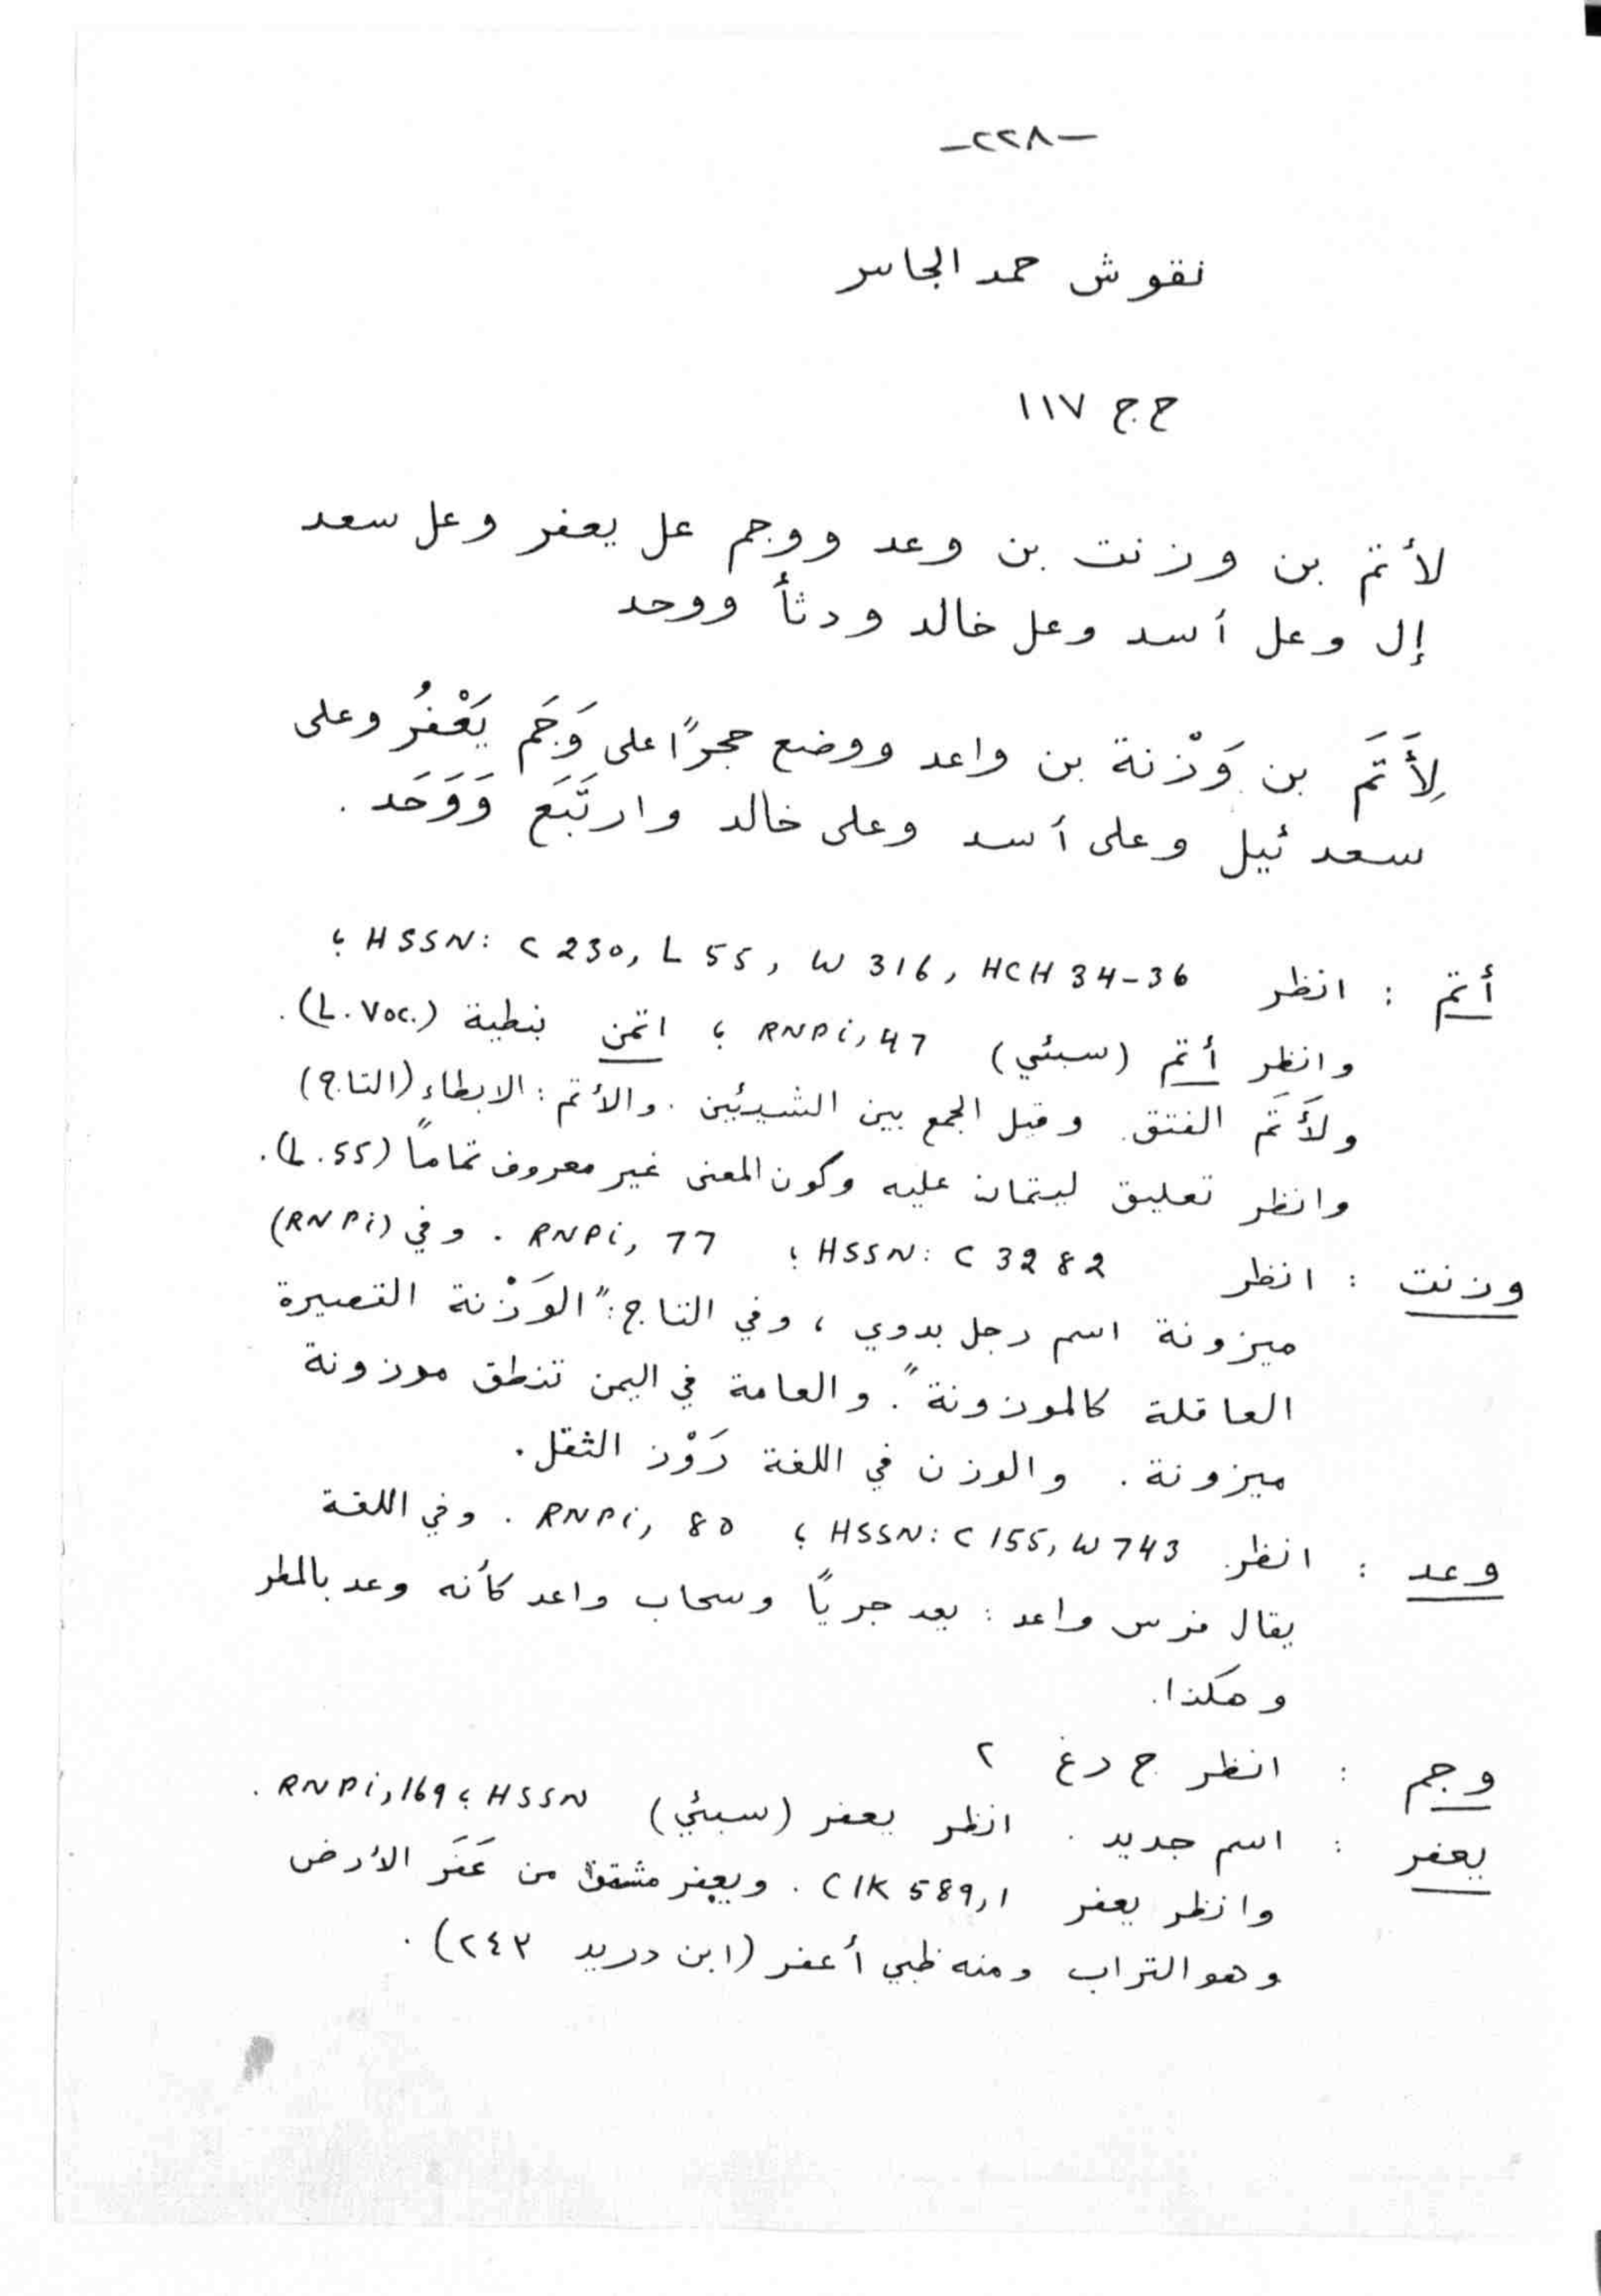 -٢٢٨-
نقوش حمد الجاسر
ح ج ١١٧
لأتم بن وزنت بن وعد ووجم عل يعفر وعل سعد
إل وعل أسد وعل خالد ودثأ ووحد
لِأَتَم بن وَزْنة بن واعد ووضع حجرًا على وَجَم يَعْفُر وعلى
سعد ئيل وعلى أسد وعلى خالد وارتَبَع وَوَحَد .
أتم : انظر HSSN: C 230, L 55, W 316, HCH 34-36 ؛
وانظر أتم (سبئي) RNPi, 47 ؛ اتمن نبطية (L. Voc.) .
ولأَتَم الفتق . وقيل الجمع بين الشيئين . والأتم : الابطاء (التاج)
وانظر تعليق ليتمان عليه وكون المعنى غير معروف تمامًا (L. 55) .
وزنت : انظر HSSN: C 3282 ؛ RNPi, 77 . وفي (RNPi)
ميزونة اسم رجل بدوي ، وفي التاج : "الوَزْنة القصيرة
العاقلة كالموزونة" . والعامة في اليمن تنطق موزونة
ميزونة . والوزن في اللغة رَوْز الثقل .
وعد : انظر HSSN: C 155, W 743 ؛ RNPi, 80 . وفي اللغة
يقال فرس واعد : يعد جريًا وسحاب واعد كأنه وعد بالمطر
وهكذا .
وجم : انظر ح د غ ٢
يعفر : اسم جديد . انظر يعفر (سبئي) HSSN ؛ RNPi, 169 .
وانظر يعفر CIK 589,1 . ويعفر مشتق من عَفَر الأرض
وهو التراب ومنه ظبي أعفر (ابن دريد ٢٤٣) .